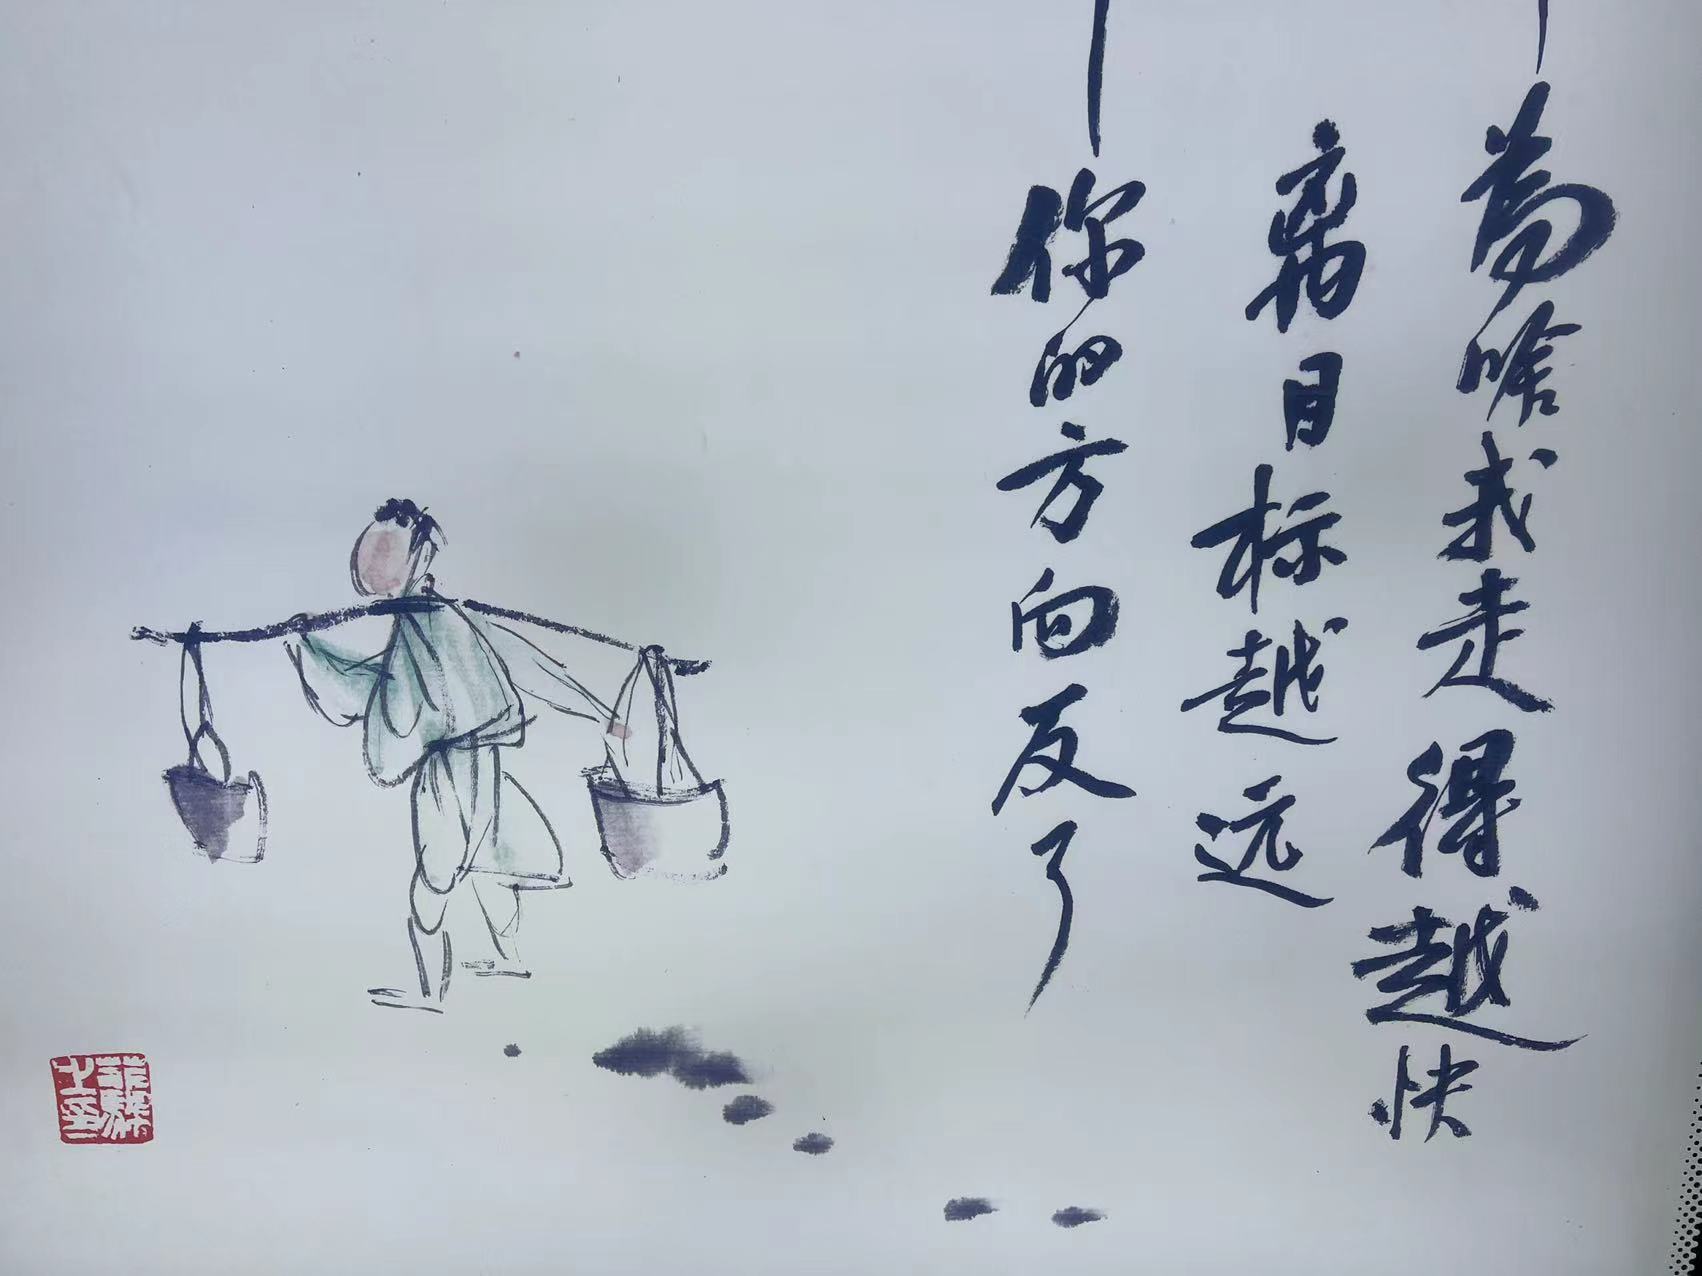 —为啥我走得越快
离目标越远
—你的方向反了